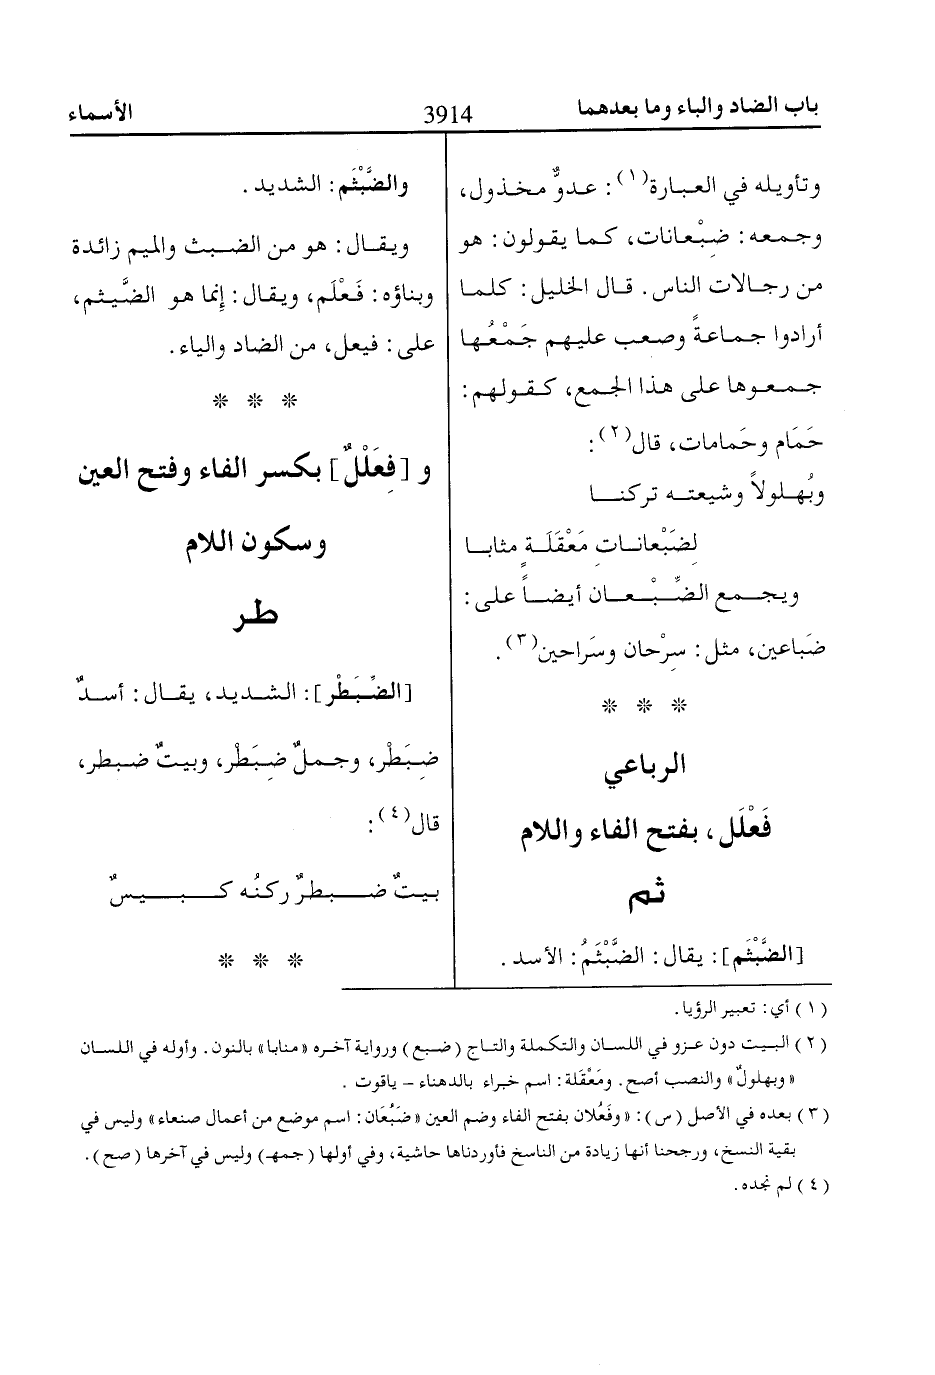 باب الضاد والباء وما بعدهما
3914
الأسماء
وتأويله في العبارة(١): عدوٌّ مخذول،
وجمعه: ضِبْعانات، كما يقولون: هو
من رجالات الناس. قال الخليل: كلما
أرادوا جماعةً وصعب عليهم جَمْعُها
جمعوها على هذا الجمع، كقولهم:
حَمَام وحَمامات، قال(٢):
وبُهلولاً وشيعته تركنا
لضِبْعاناتِ مَعْقَلَةٍ مثابا
ويجمع الضِّبْعان أيضاً على:
ضَباعين، مثل: سِرْحان وسَراحين(٣).
* * *
الرباعي
فَعْلَل، بفتح الفاء واللام
ثم
[الضَّبْثَم]: يقال: الضَّبْثَمُ: الأسد.
والضَّبْثَم: الشديد.
ويقال: هو من الضبث والميم زائدة
وبناؤه: فَعْلَم، ويقال: إنما هو الضَّيثم،
على: فيعل، من الضاد والياء.
* * *
و [فِعَلْلٌ] بكسر الفاء وفتح العين
وسكون اللام
طر
[الضِّبَطْر]: الشديد، يقال: أسدٌ
ضِبَطْر، وجملٌ ضِبَطْر، وبيتٌ ضبطر،
قال(٤):
بيتٌ ضبطرٌ ركنُه كبيسٌ
* * *
(١) أي: تعبير الرؤيا.
(٢) البيت دون عزو في اللسان والتكملة والتاج (ضبع) ورواية آخره «منابا» بالنون. وأوله في اللسان
«وبهلولٌ» والنصب أصح. ومَعْقَلة: اسم خبراء بالدهناء - ياقوت.
(٣) بعده في الأصل (س): «وفَعُلان بفتح الفاء وضم العين «ضَبُعَان: اسم موضع من أعمال صنعاء» وليس في
بقية النسخ، ورجحنا أنها زيادة من الناسخ فأوردناها حاشية، وفي أولها (جمهـ) وليس في آخرها (صح).
(٤) لم نجده.